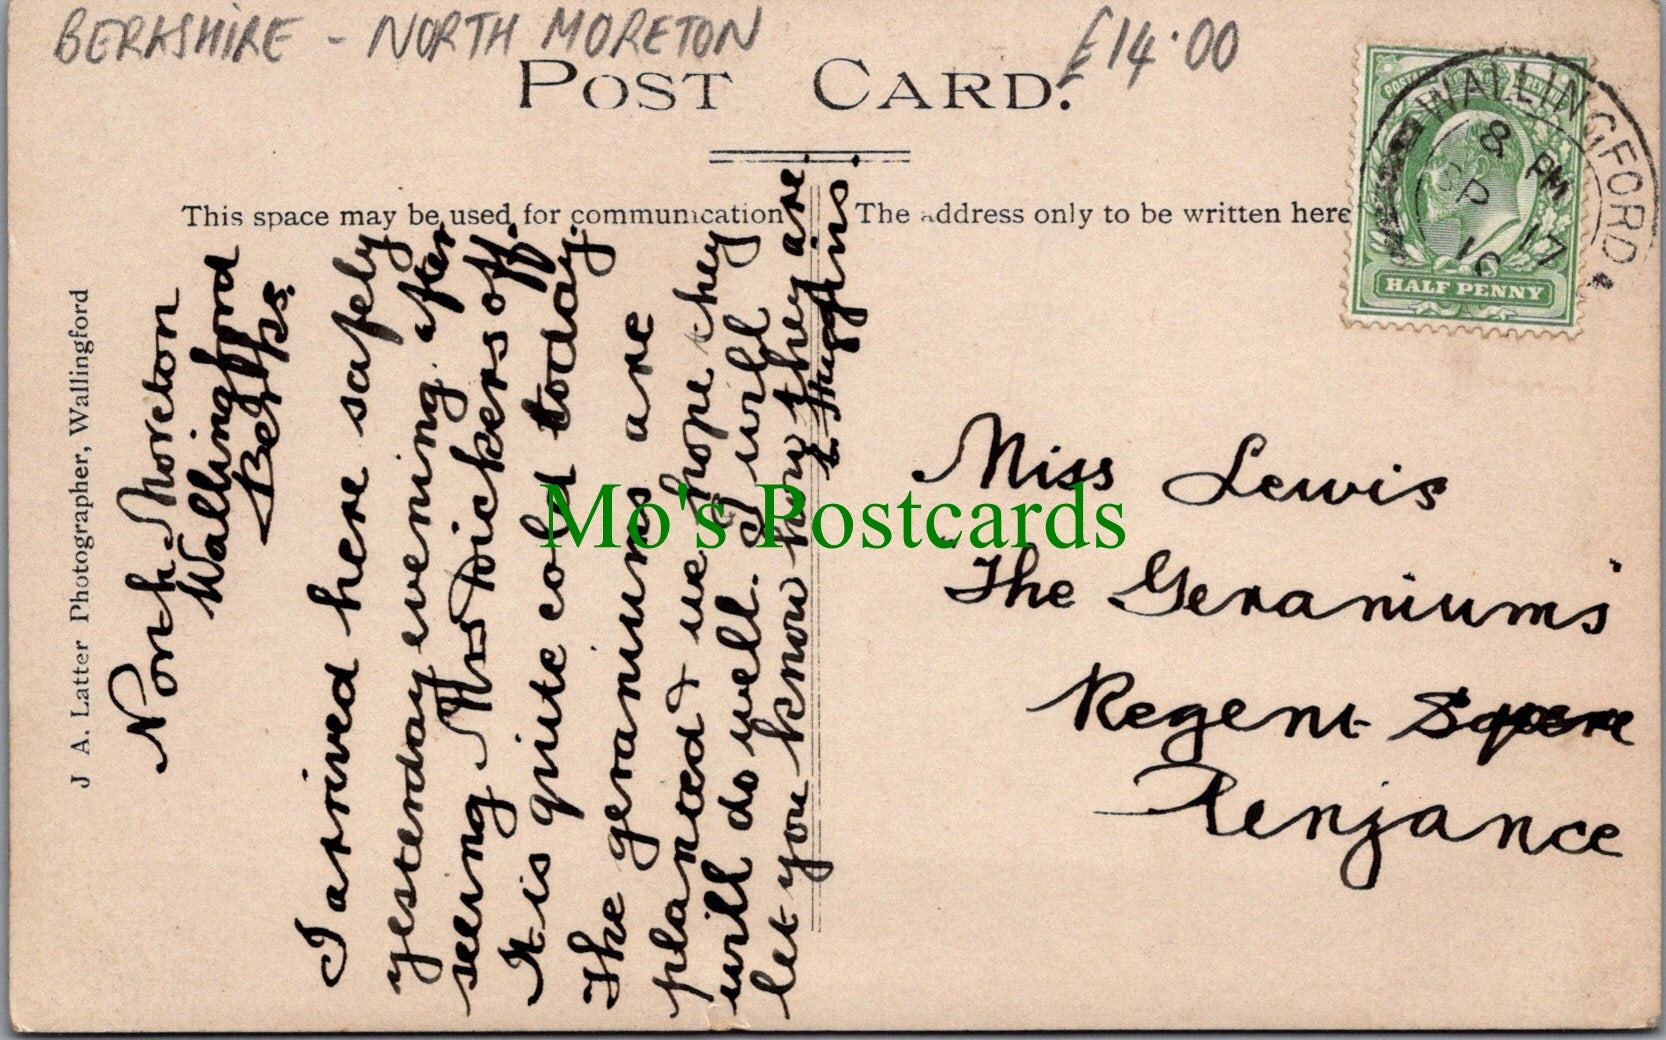 BERKSHIRE - NORTH MORETON
£14.00
POST CARD.
This space may be used for communication
The address only to be written here
J A. Latter Photographer, Wallingford
North Moreton
Wallingford
Berks.
I arrived here safely
yesterday evening after
seeing Mrs Vickers off.
It is quite cold today.
The geraniums are
planted & we hope they
will do well. I will
let you know how they are
Huggins
Miss Lewis
"The Geraniums"
Regent Square
Penzance
WALLINGFORD
8 PM
SP 17
10
HALF PENNY
Mo's Postcards